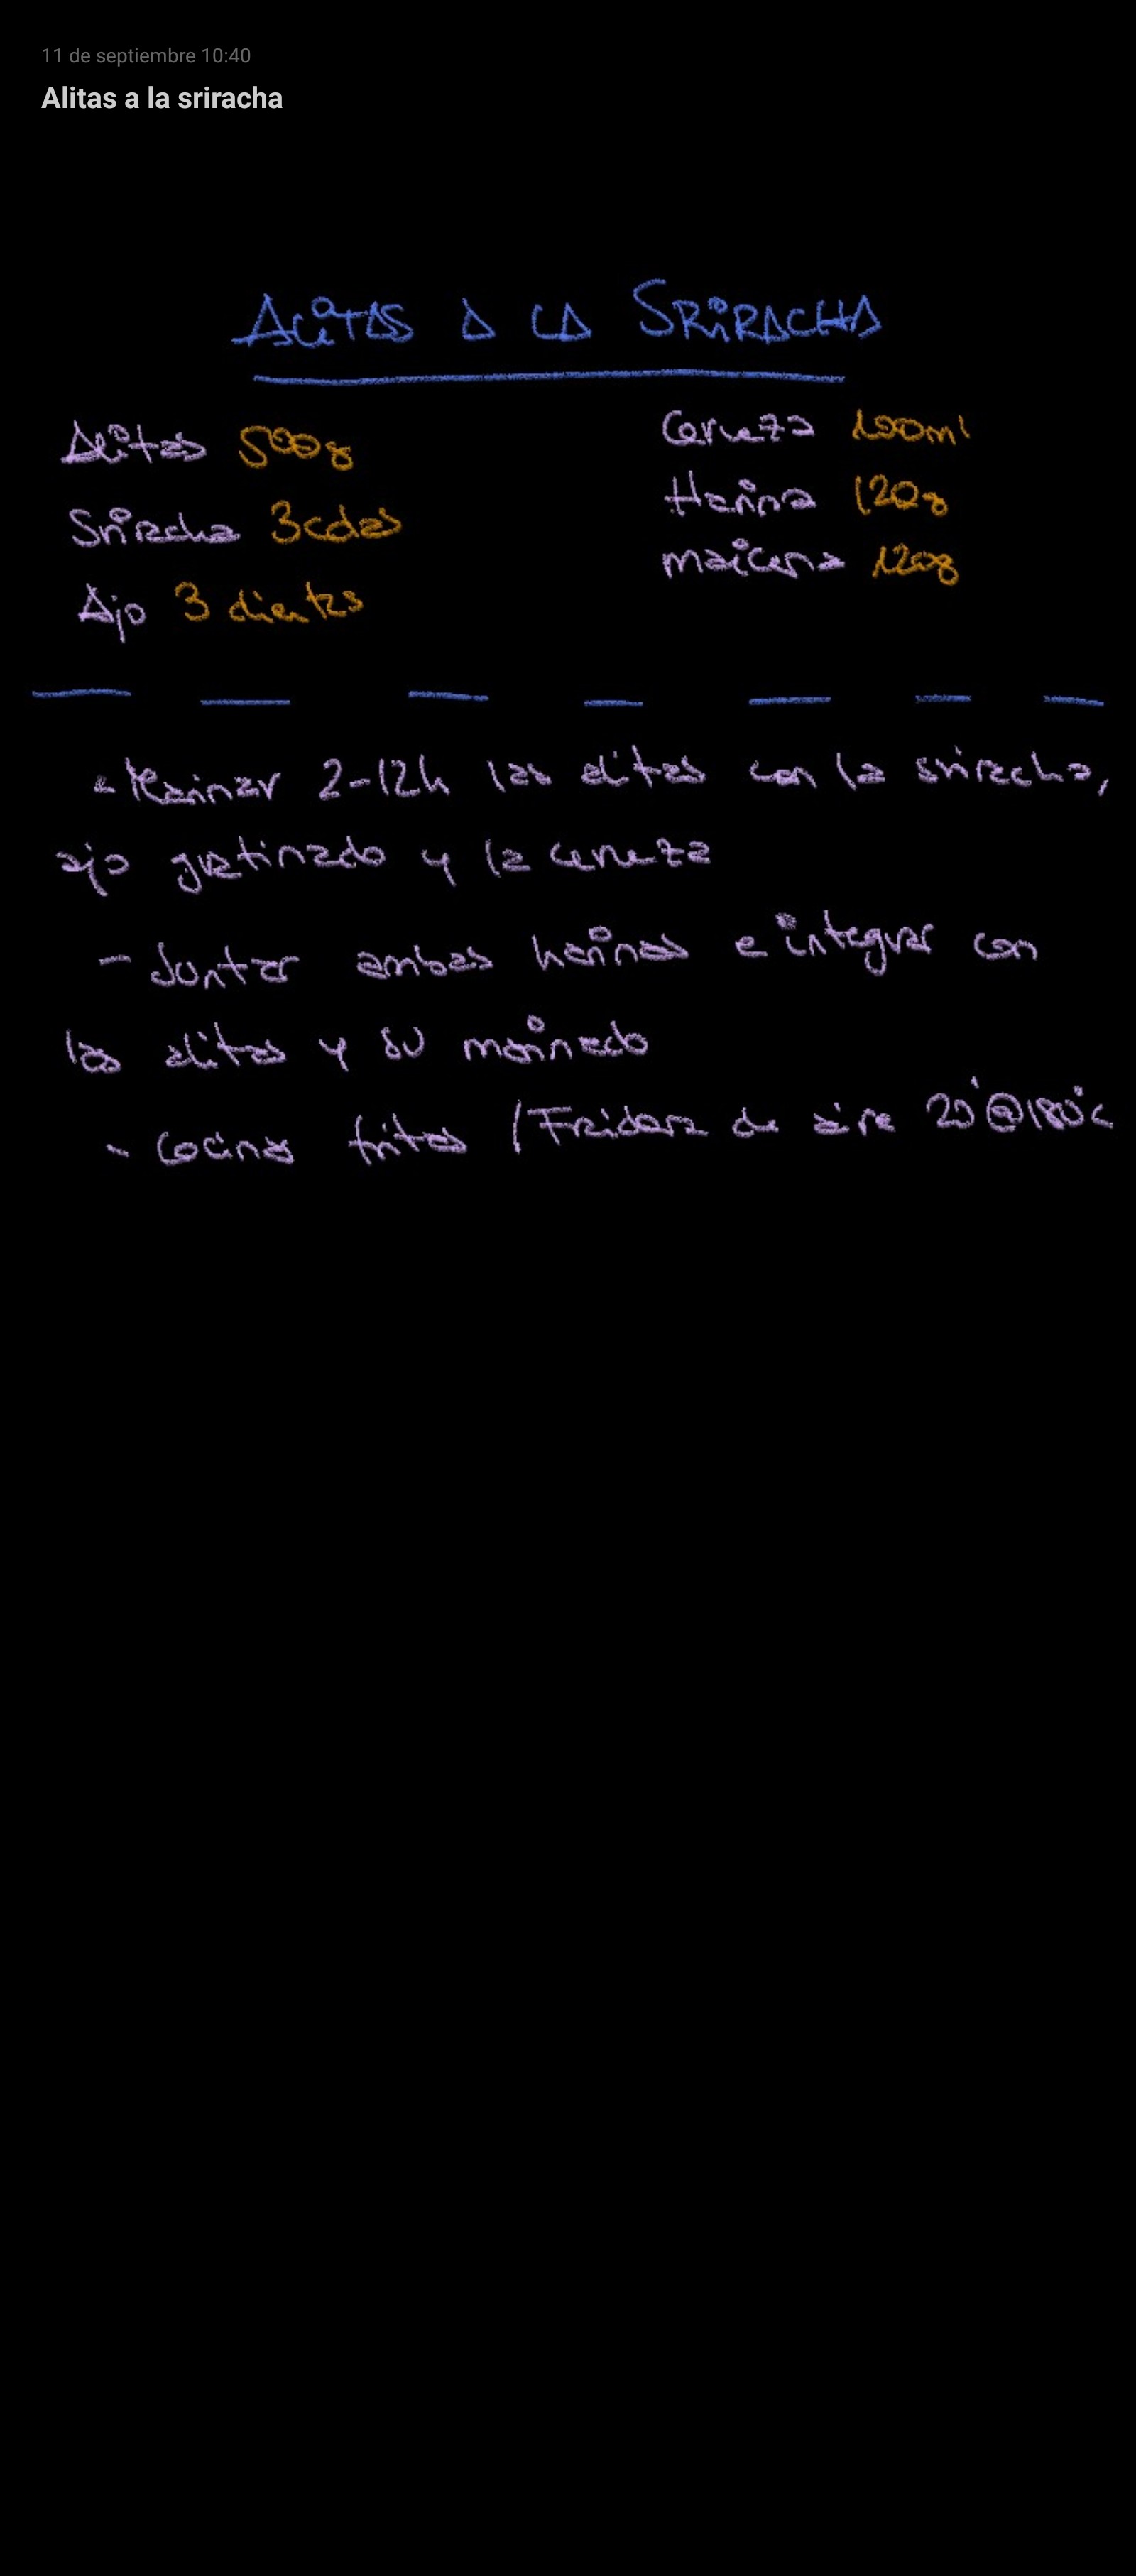 11 de septiembre 10:40
Alitas a la sriracha
ALITAS A LA SRIRACHA
Alitas 500g
Sriracha 3cdas
Ajo 3 dientes
Cerveza 100ml
Harina 120g
maicena 120g
- Marinar 2-12h las alitas con la sriracha,
ajo gratinado y la cerveza
- Juntar ambas harinas e integrar con
las alitas y su marinado
- Cocinar fritas / Freidora de aire 20'@180°c